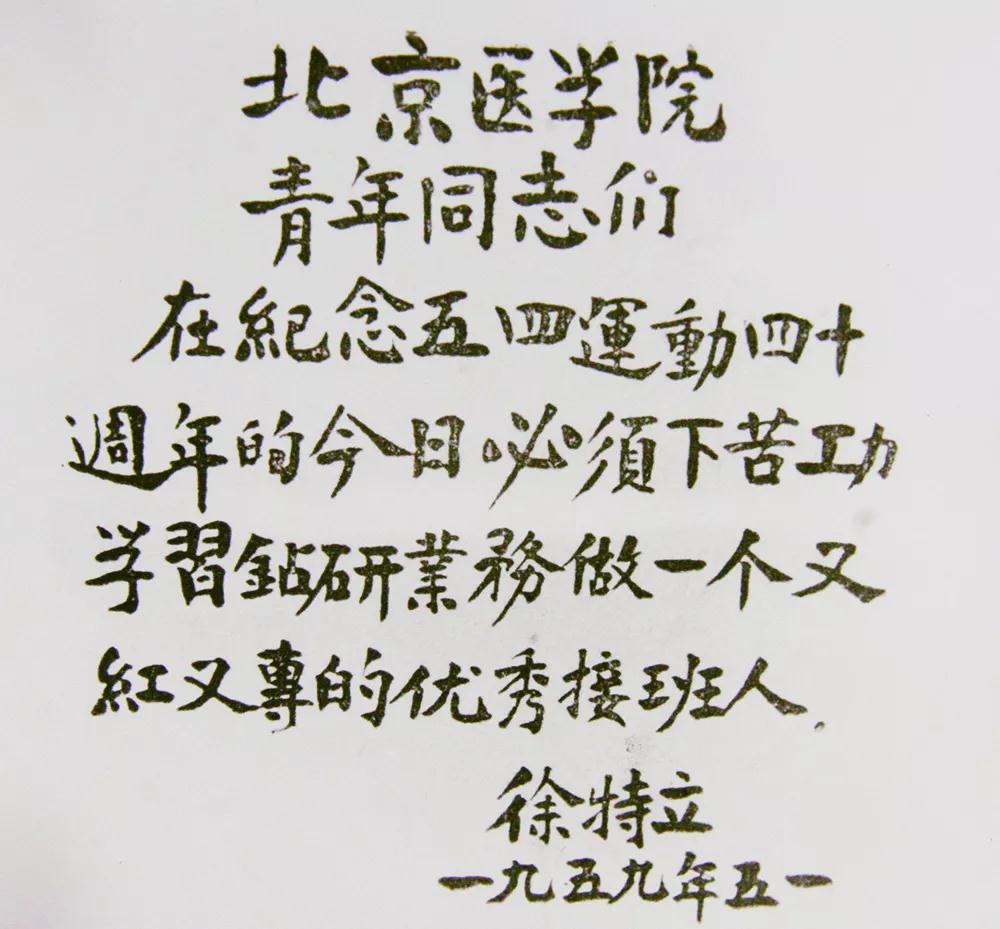 北京医学院
青年同志们
在紀念五四運動四十
週年的今日必須下苦功
学習鈷研業務做一个又
紅又專的优秀接班人.
徐特立
一九五九年五一